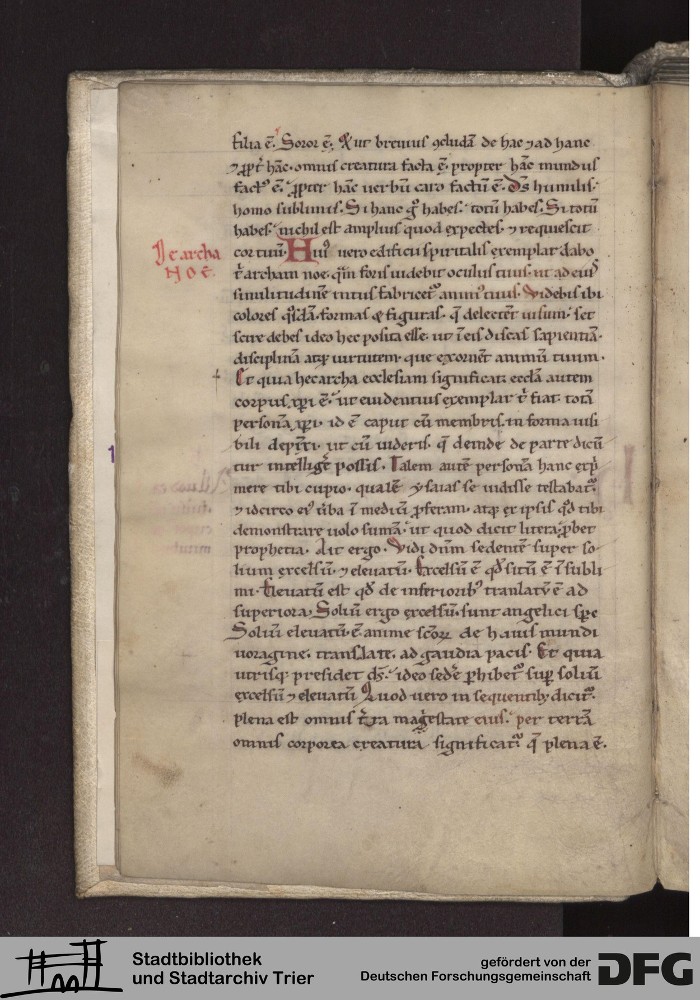 filia ē. Soror ē. Et ut breuius ꝯcludā de hac ⁊ ad hanc
⁊ ꝓpt̄ hāc. omnis creatura facta ē. propter hāc mundus
factꝰ ē. ꝓpter hāc uerbū caro factū ē. Dꝰs humilis.
homo sublimis. Si hanc gͦ habes. totū habes. Si totū
habes. nichil est amplius quod expectes. ⁊ requiescit
cor tuū. Huiꝰ uero edificii spiritalis exemplar dabo
De archa
Noe.
t̄ archam noe. quā foris uidebit oculus tuus. ut ad eiꝰ
similitudinē intus fabricetᷣ animꝰ tuus. Videbis ibi
colores q̊sdā. formas & figuras. q̄ delectēt uisum. set
scire debes ideo hec posita esse. ut ī eis discas sapientiā.
disciplinā atqꝫ uirtutem. que exornēt animū tuum.
Et quia hec archa ecclesiam significat. eccl̄a autem
corpus xp̄i ē. ut euidentius exemplar t̄ fiat. totā
personā xp̄i. id ē caput cū membris. in forma uisi
bili depīxi. ut cū uideris. q̄ deinde de parte dicū
tur intelligẽ possis. Talem autē personā hanc exp̄
mere tibi cupio. qualē ysaias se uidisse testabatᷣ.
⁊ idcirco eiꝰ ūba ī mediū ꝓferam. atqꝫ ex ipsis qd̄ tibi
demonstrare uolo sumā. ut quod dicit litera. ꝓbet
prophetia. Ait ergo. Vidi dn̄m sedentē super so-
lium excelsū. ⁊ eleuatū. Excelsū ē qd̄ sitū ē ī subli
mi. Eleuatū est qd̄ de inferioribꝰ translatū ē ad
superiora. Soliū ergo excelsū. sunt angelici sp̄c
Soliū eleuatū. ē anime sc̄oꝝ de huius mundi
uoragine. translate. ad gaudia pacis. Et quia
utrisqꝫ presidet dꝰs. ideo sedē ꝓhibetᷣ suꝑ soliū
excelsū ⁊ eleuatū. Quod uero in sequentibꝫ dicitᷣ.
plena est omnis t̄ra maiestate eius. per terrā
omnis corporea creatura significatᷣ q̄ plena ē.
1
Stadtbibliothek
und Stadtarchiv Trier
gefördert von der
Deutschen Forschungsgemeinschaft
DFG